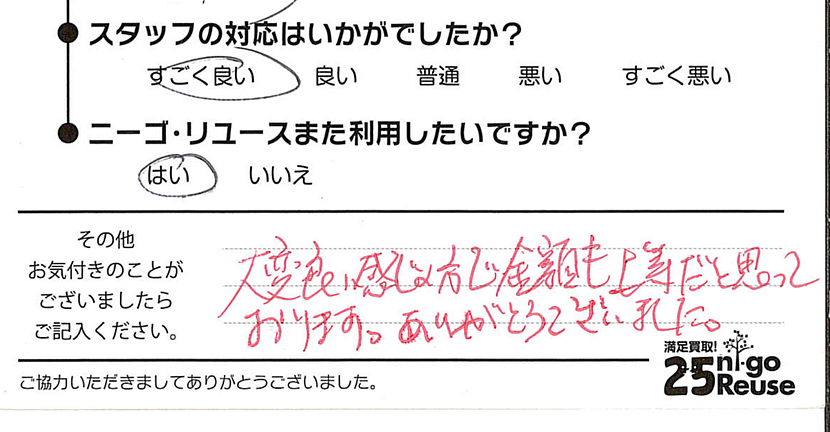 スタッフの対応はいかがでしたか?
すごく良い 良い 普通 悪い すごく悪い
ニーゴ・リユースまた利用したいですか?
はい いいえ
その他
お気付きのことが
ございましたら
ご記入ください。
大変良い感じの方で金額も上等だと思って
おります。ありがとうございました。
ご協力いただきましてありがとうございました。
満足買取!
25 ni-go
Reuse